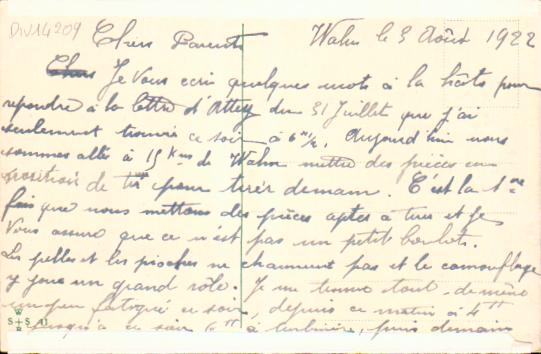 DIV14209
Chers Parents Wahn le 3 Août 1922
Je vous ecris quelques mots à la hâte pour
repondre à la lettre d'Attey du 31 Juillet que j'ai
seulement trouvée ce soir à 6 h 1/2. Aujourd'hui nous
sommes allés à 15 Kms de Wahn mettre des pièces en
position de tir pour tirer demain. C'est la 1ere
fois que nous mettons des pièces aptes à tirer et je
vous assure que ce n'est pas un petit boulot.
Les pelles et les pioches ne chaument pas et le camouflage
y joue un grand rôle. Je me trouve tout-de-même
un peu fatigué ce soir, depuis ce matin à 4 H
jusqu'à ce soir 6 H à turbiner, puis demain
S + S